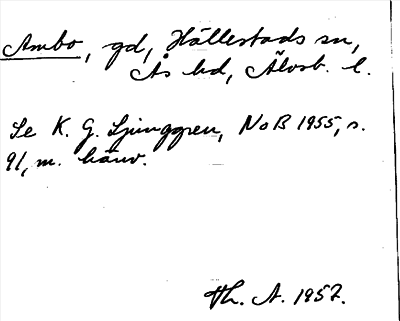 Ambo, gd, Hällestads sn,
Ås hd, Älvsb. l.
Se K. G. Ljunggren, NoB 1955, s.
91, m. hänv.
Th. A. 1957.